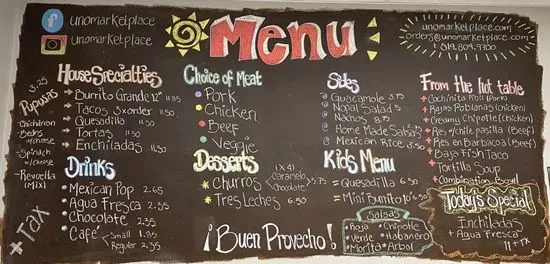 unomarketplace
unomarketplace
Menu
unomarketplace.com
orders@unomarketplace.com
519.804.9900
House Specialties
Burrito Grande 12" 11.85
Tacos 3xorder 11.50
Quesadilla 11.50
Tortas 11.50
Enchiladas 11.50
Pupusas
3.25
Chicharron
Beans w/cheese
Spinach w/cheese
Revuelta (Mix)
+ Tax
Drinks
Mexican Pop 2.65
Agua Fresca 2.35
Chocolate 2.35
Café Small 1.85
Regular 2.35
Choice of Meat
Pork
Chicken
Beef
Veggie
Desserts
Churros (x4) Caramelo Chocolate $3.75
Tres Leches 6.50
Sides
Guacamole 3.75
Nopal Salad 5
Nachos 8.75
Home Made Salsas
Mexican Rice 3.50
Kids Menu
Quesadilla 6.50
Mini Burrito 6.50
Salsas
Roja Chipotle
Verde Habanero
Morita Arbol
¡Buen Provecho!
From the hot table
Cochinita Pibil (Pork)
Rajas Poblanas (Chicken)
Creamy Chipotle (Chicken)
Res y/chile pastilla (Beef)
Res en Barbacoa (Beef)
Baja Fish Taco
Tortilla Soup
Combination Bowl
Today's Special
Enchiladas
+ Agua Fresca
11 + Tx